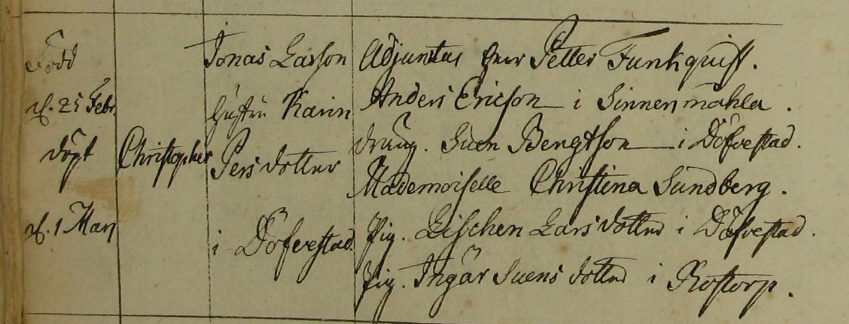 Född
d. 25 Febr.
döpt
d. 1 Mars
Christopher
Jonas Larsson
hustru Karin
Pers dotter
i Döfvestad
Adjunctus herr Petter Funkquist.
Anders Ericson i Sinnenmåhla.
dräng. Suen Bengtson i Döfvestad.
Mademoiselle Christina Sundberg.
Pig. Lischen Lars dotter i Döfvestad.
Pig. Ingär Suens dotter i Rostorp.